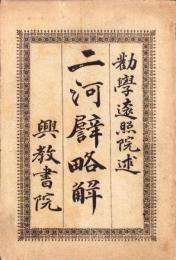 勸學遠照院述
二河譬略解
興教書院